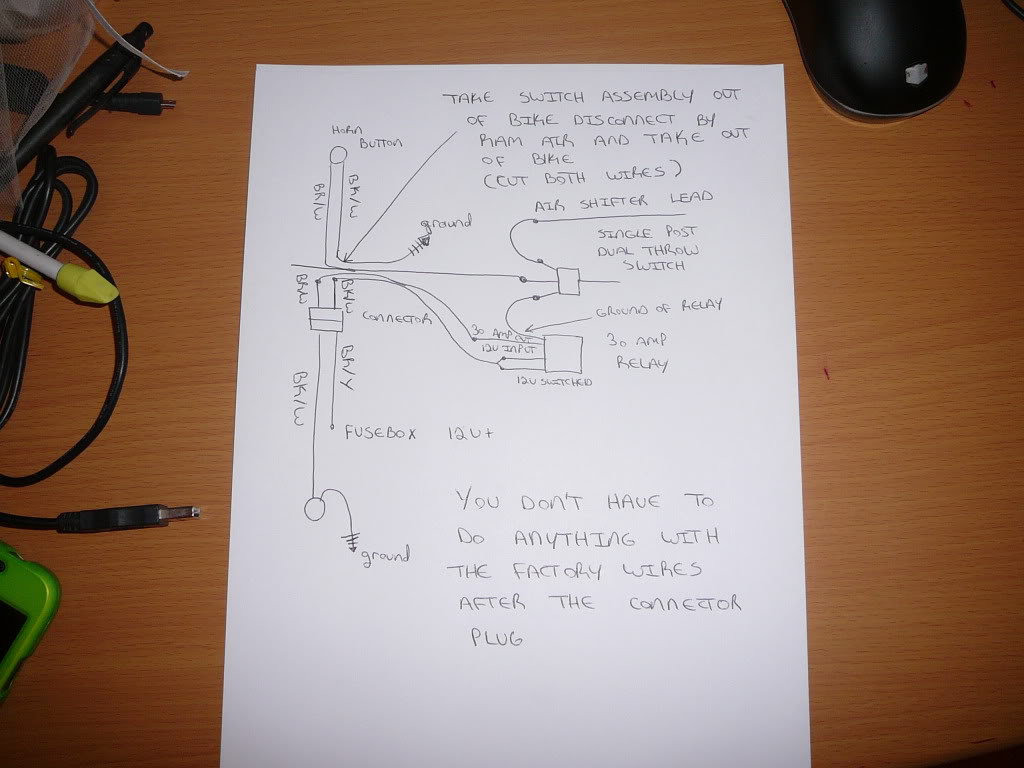 TAKE SWITCH ASSEMBLY OUT
OF BIKE DISCONNECT BY
RAM AIR AND TAKE OUT
OF BIKE
(CUT BOTH WIRES)
HORN
BUTTON
BK/W
BK/W
ground
AIR SHIFTER LEAD
SINGLE POST
DUAL THROW
SWITCH
BK/W
BK/W
CONNECTOR
GROUND OF RELAY
30 AMP OUT
12V INPUT
12V SWITCHED
30 AMP
RELAY
BK/W
BR/Y
FUSEBOX 12V+
ground
YOU DON'T HAVE TO
DO ANYTHING WITH
THE FACTORY WIRES
AFTER THE CONNECTOR
PLUG